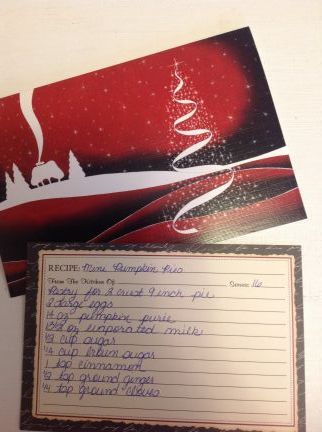 RECIPE: Mini Pumpkin Pies
From The Kitchen Of: Serves: 16
Pastry for 2 crust 9 inch pie
2 large eggs
14 oz pumpkin purée
13½ oz evaporated milk
½ cup sugar
¼ cup brown sugar
1 tsp cinnamon
½ tsp ground ginger
¼ tsp ground cloves